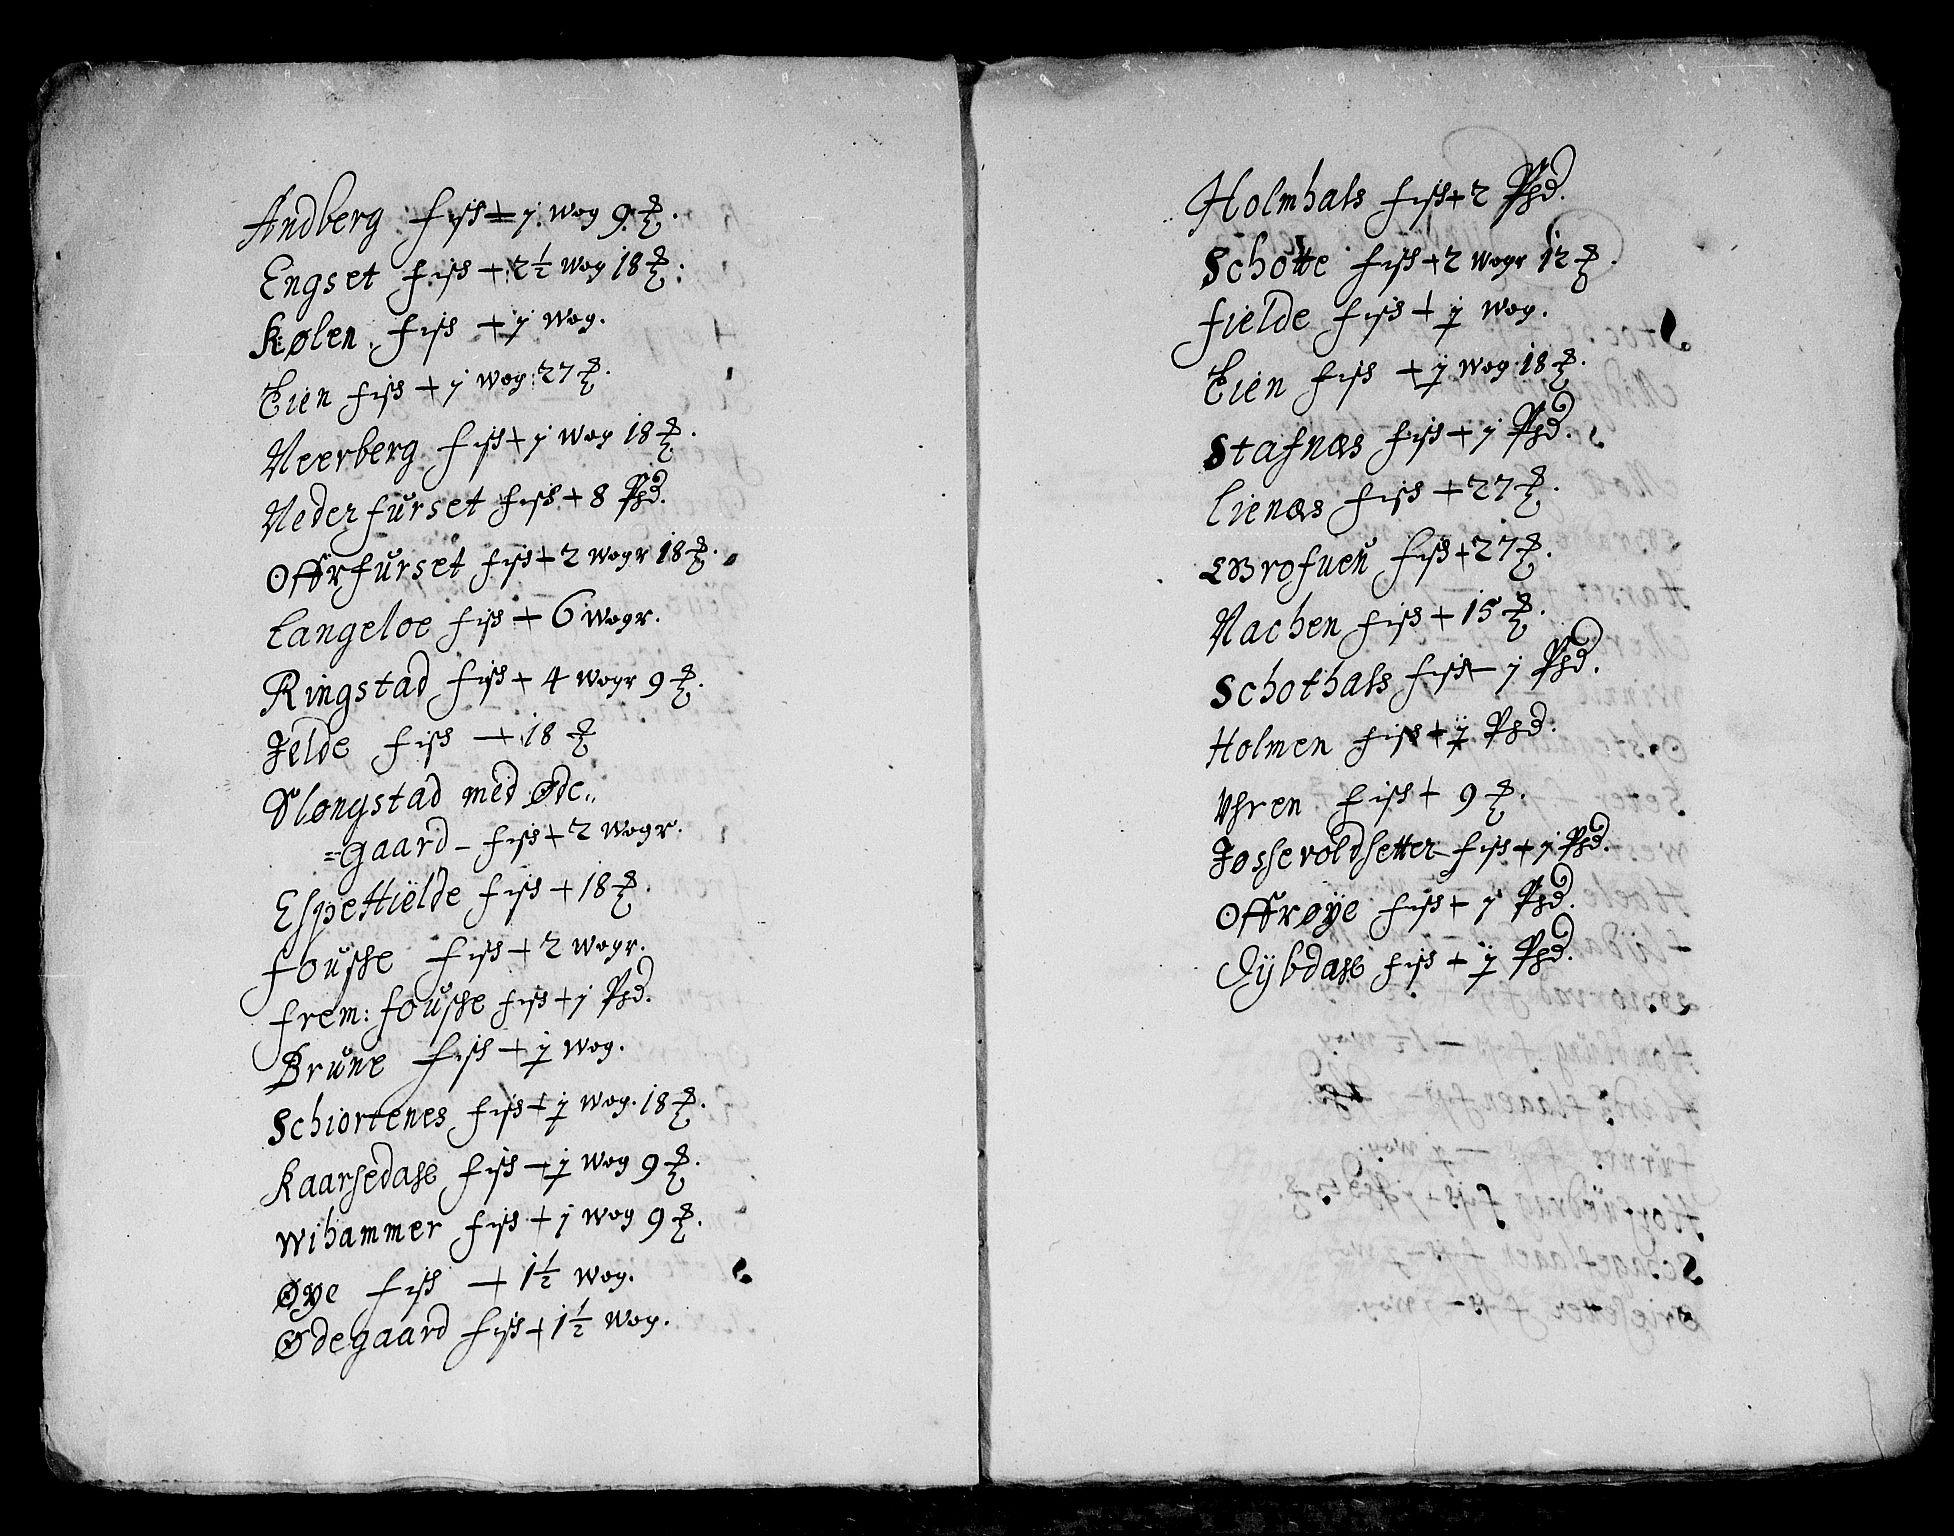 Andberg fisch + 1 wog 9 ℔.
Engset fisch + 2½ wog 18 ℔:
Kølen fisch + 1 wog.
Eien fisch + 1 wog: 27 ℔.
Neerberg fisch + 1 wog 18 ℔.
Nederfŭrset fisch + 8 Phd.
Offrfŭrset fisch + 2 wogr 18 ℔.
Langeloe fisch + 6 wogr.
Ringstad fisch + 4 wogr 9 ℔.
Jelde fisch + 18 ℔
Slongstad med Øde„
=gaard – fisch + 2 wogr.
Espettielde fisch + 18 ℔.
foŭsche fisch + 2 wogr.
frem: foŭsche fisch + 1 Phd.
Brŭne fisch + 1 wog.
Schiortenes fisch + 1 wog. 18 ℔.
Kaarsedahl fisch + 1 wog 9 ℔.
Wihammer fisch + 1 wog 9 ℔.
Øye fisch + 1½ wog.
Ødegaard fisch + 1½ wog.
Holmhals fisch + 2 Phd.
Schotte fisch + 2 wogr 12 ℔.
fielde fisch + 1 wog.
Eien fisch + 1 wog 18 ℔.
Stafnæs fisch + 1 Phd.
Lienæs fisch + 27 ℔.
Brofŭen fisch + 27 ℔.
Nachen fisch + 15 ℔.
Schothals fisch – 1 Phd.
Holmen fisch + 1 Phd:
Vhren fisch + 9 ℔.
Josseroldsetter fisch + 1 Phd.
Offrøye fisch + 1 Phd.
Dybdahl fisch + 1 Phd.